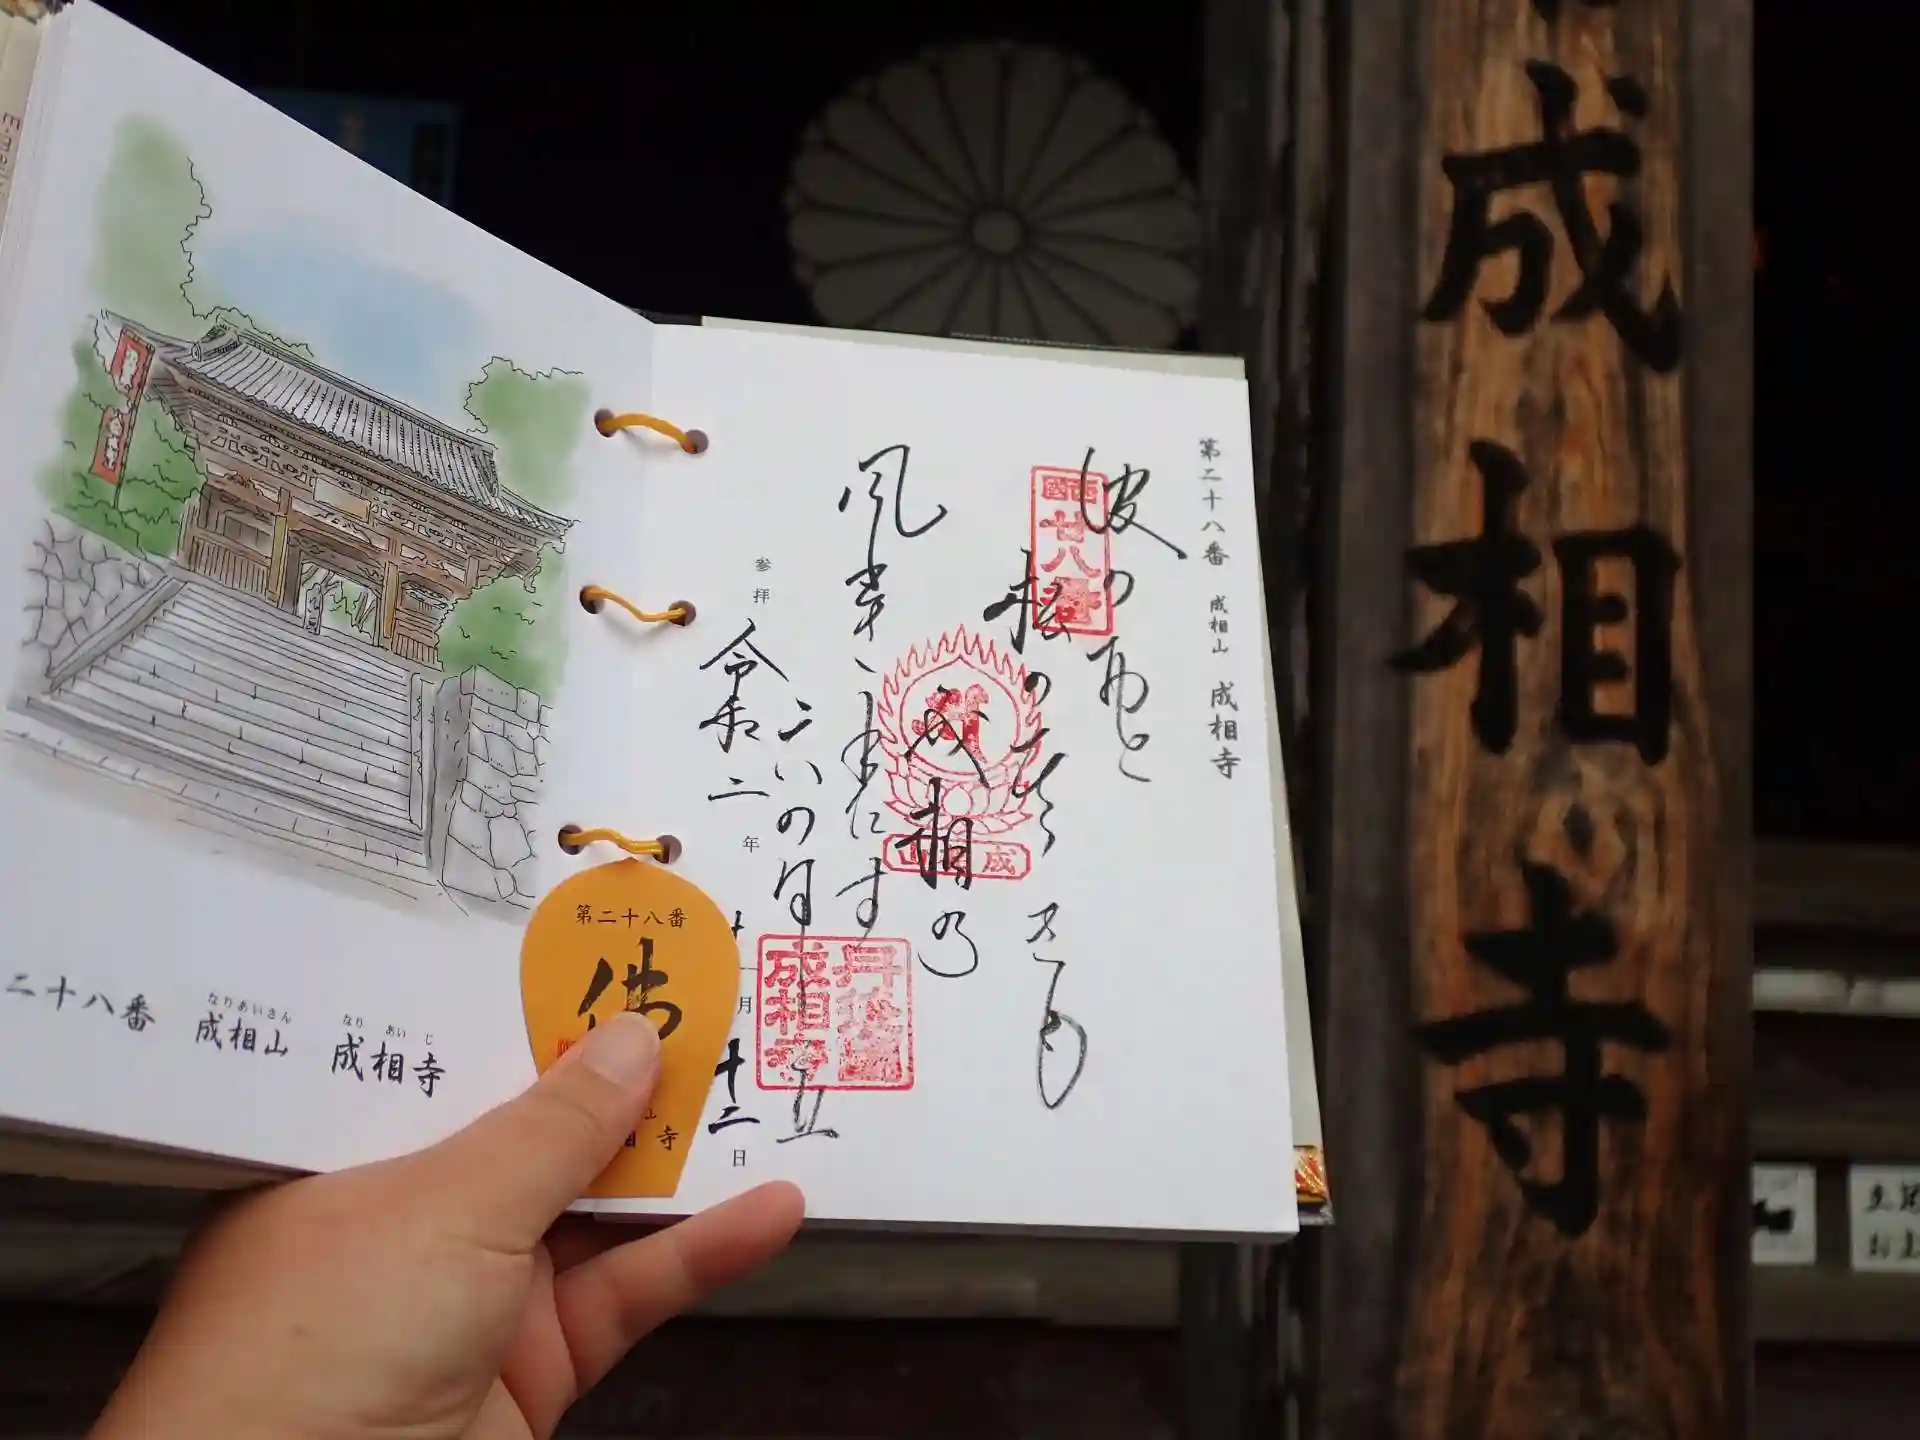 成相寺
第二十八番 成相山 成相寺
波の音
松のひゞきも
成相の
風ふきわたす
天の橋立
西国廿八番
成相山
丹後国
成相寺
参拝
令和二年
十一月
十二日
第二十八番
佛
寺
二十八番 成相山 成相寺
なりあいさん
なりあいじ
E-mail